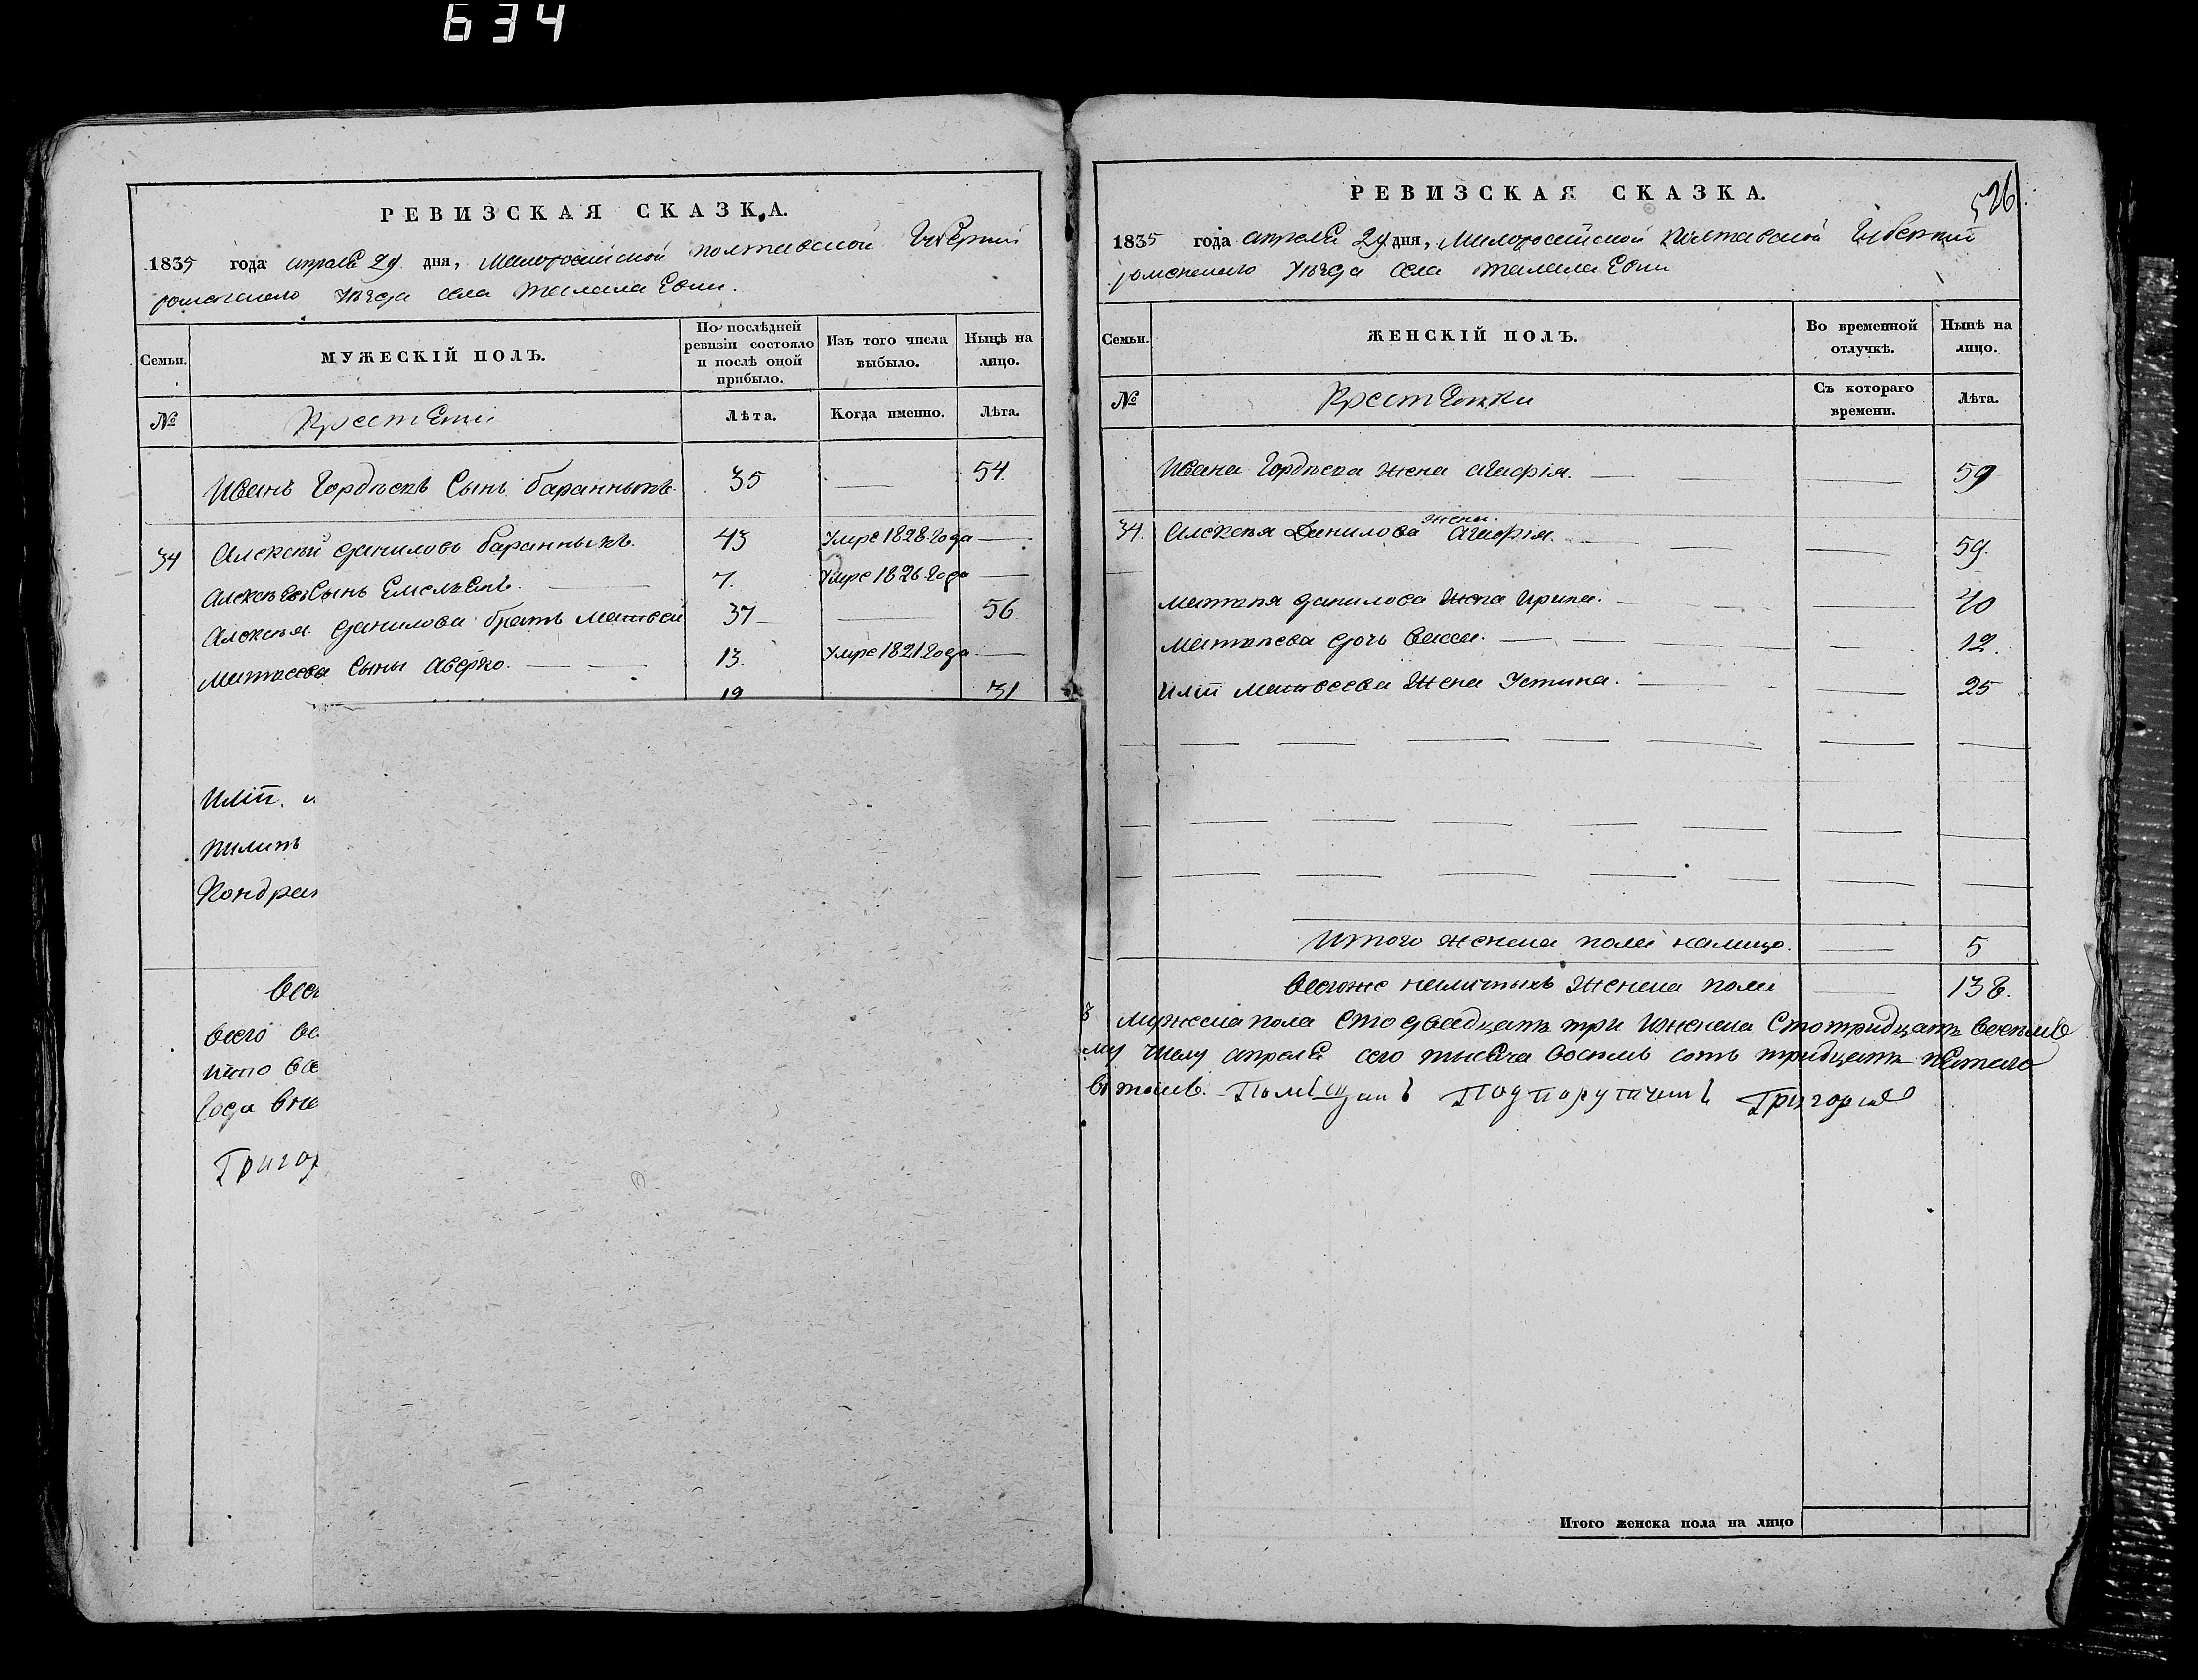 634
РЕВИЗСКАЯ СКАЗКА.
1835 года апреля 29 дня, Малоросийской полтавской Губернии
роменского уезда села
Семьи.
МУЖЕСКІЙ ПОЛЪ.
По послѣдней ревизіи состояло и послѣ оной прибыло.
Изъ того числа выбыло.
Нынѣ на лицо.
№
Крестьяне
Лѣта.
Когда именно.
Лѣта.
Иванъ Гордѣевъ Сынъ баранныкъ. 35 — 54.
34 Алексѣй даниловъ баранныкъ. 43 Умре 1828. Года —
Алексѣевъ Сынъ Емельянъ. — 7. Умре 1826. Года —
Алексѣя данилова братъ Матвей 37 — 56
Матвеева Сыны Аверко. — — 13. Умре 1821. Года. —
19 31
Илiи.
пилипъ
Кондрат
всего
Года
Григор
РЕВИЗСКАЯ СКАЗКА.
526
1835 года апреля 29 дня, Малоросийской полтавской Губернии
роменского уезда села
Семьи.
ЖЕНСКІЙ ПОЛЪ.
Во временной отлучкѣ.
Нынѣ на лицо.
№
Крестьянки
Съ котораго времени.
Лѣта.
Ивана Гордѣева жена агафія. — — — 59
жена
34. Алексѣя Данилова агафія. — — — 59.
Матвѣя данилова жена Ирина. — — — 40
Матвѣева дочь васса. — — — 12.
Илiи Матвеева жена Устина. — — — 25
Итого женска пола налицо. — 5
Всегоже наличныхъ женска пола — 138.
мужеска пола сто двадцать три и женска сто тридцать восемь
му числу апреля сего тысяча восемь сотъ тридцать пятого
Помѣщикъ Подпоручикъ Григорий
Итого женска пола на лицо